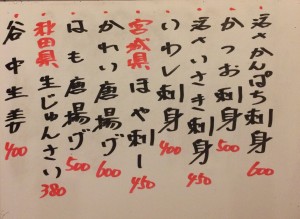 活かんぱち刺身 600
かつお刺身 500
活いさき刺身 450
いわし刺身 400
宮城県 ほや刺し 450
かわい唐揚げ 600
はも唐揚げ 500
秋田県 生じゅんさい 380
谷中生姜 400